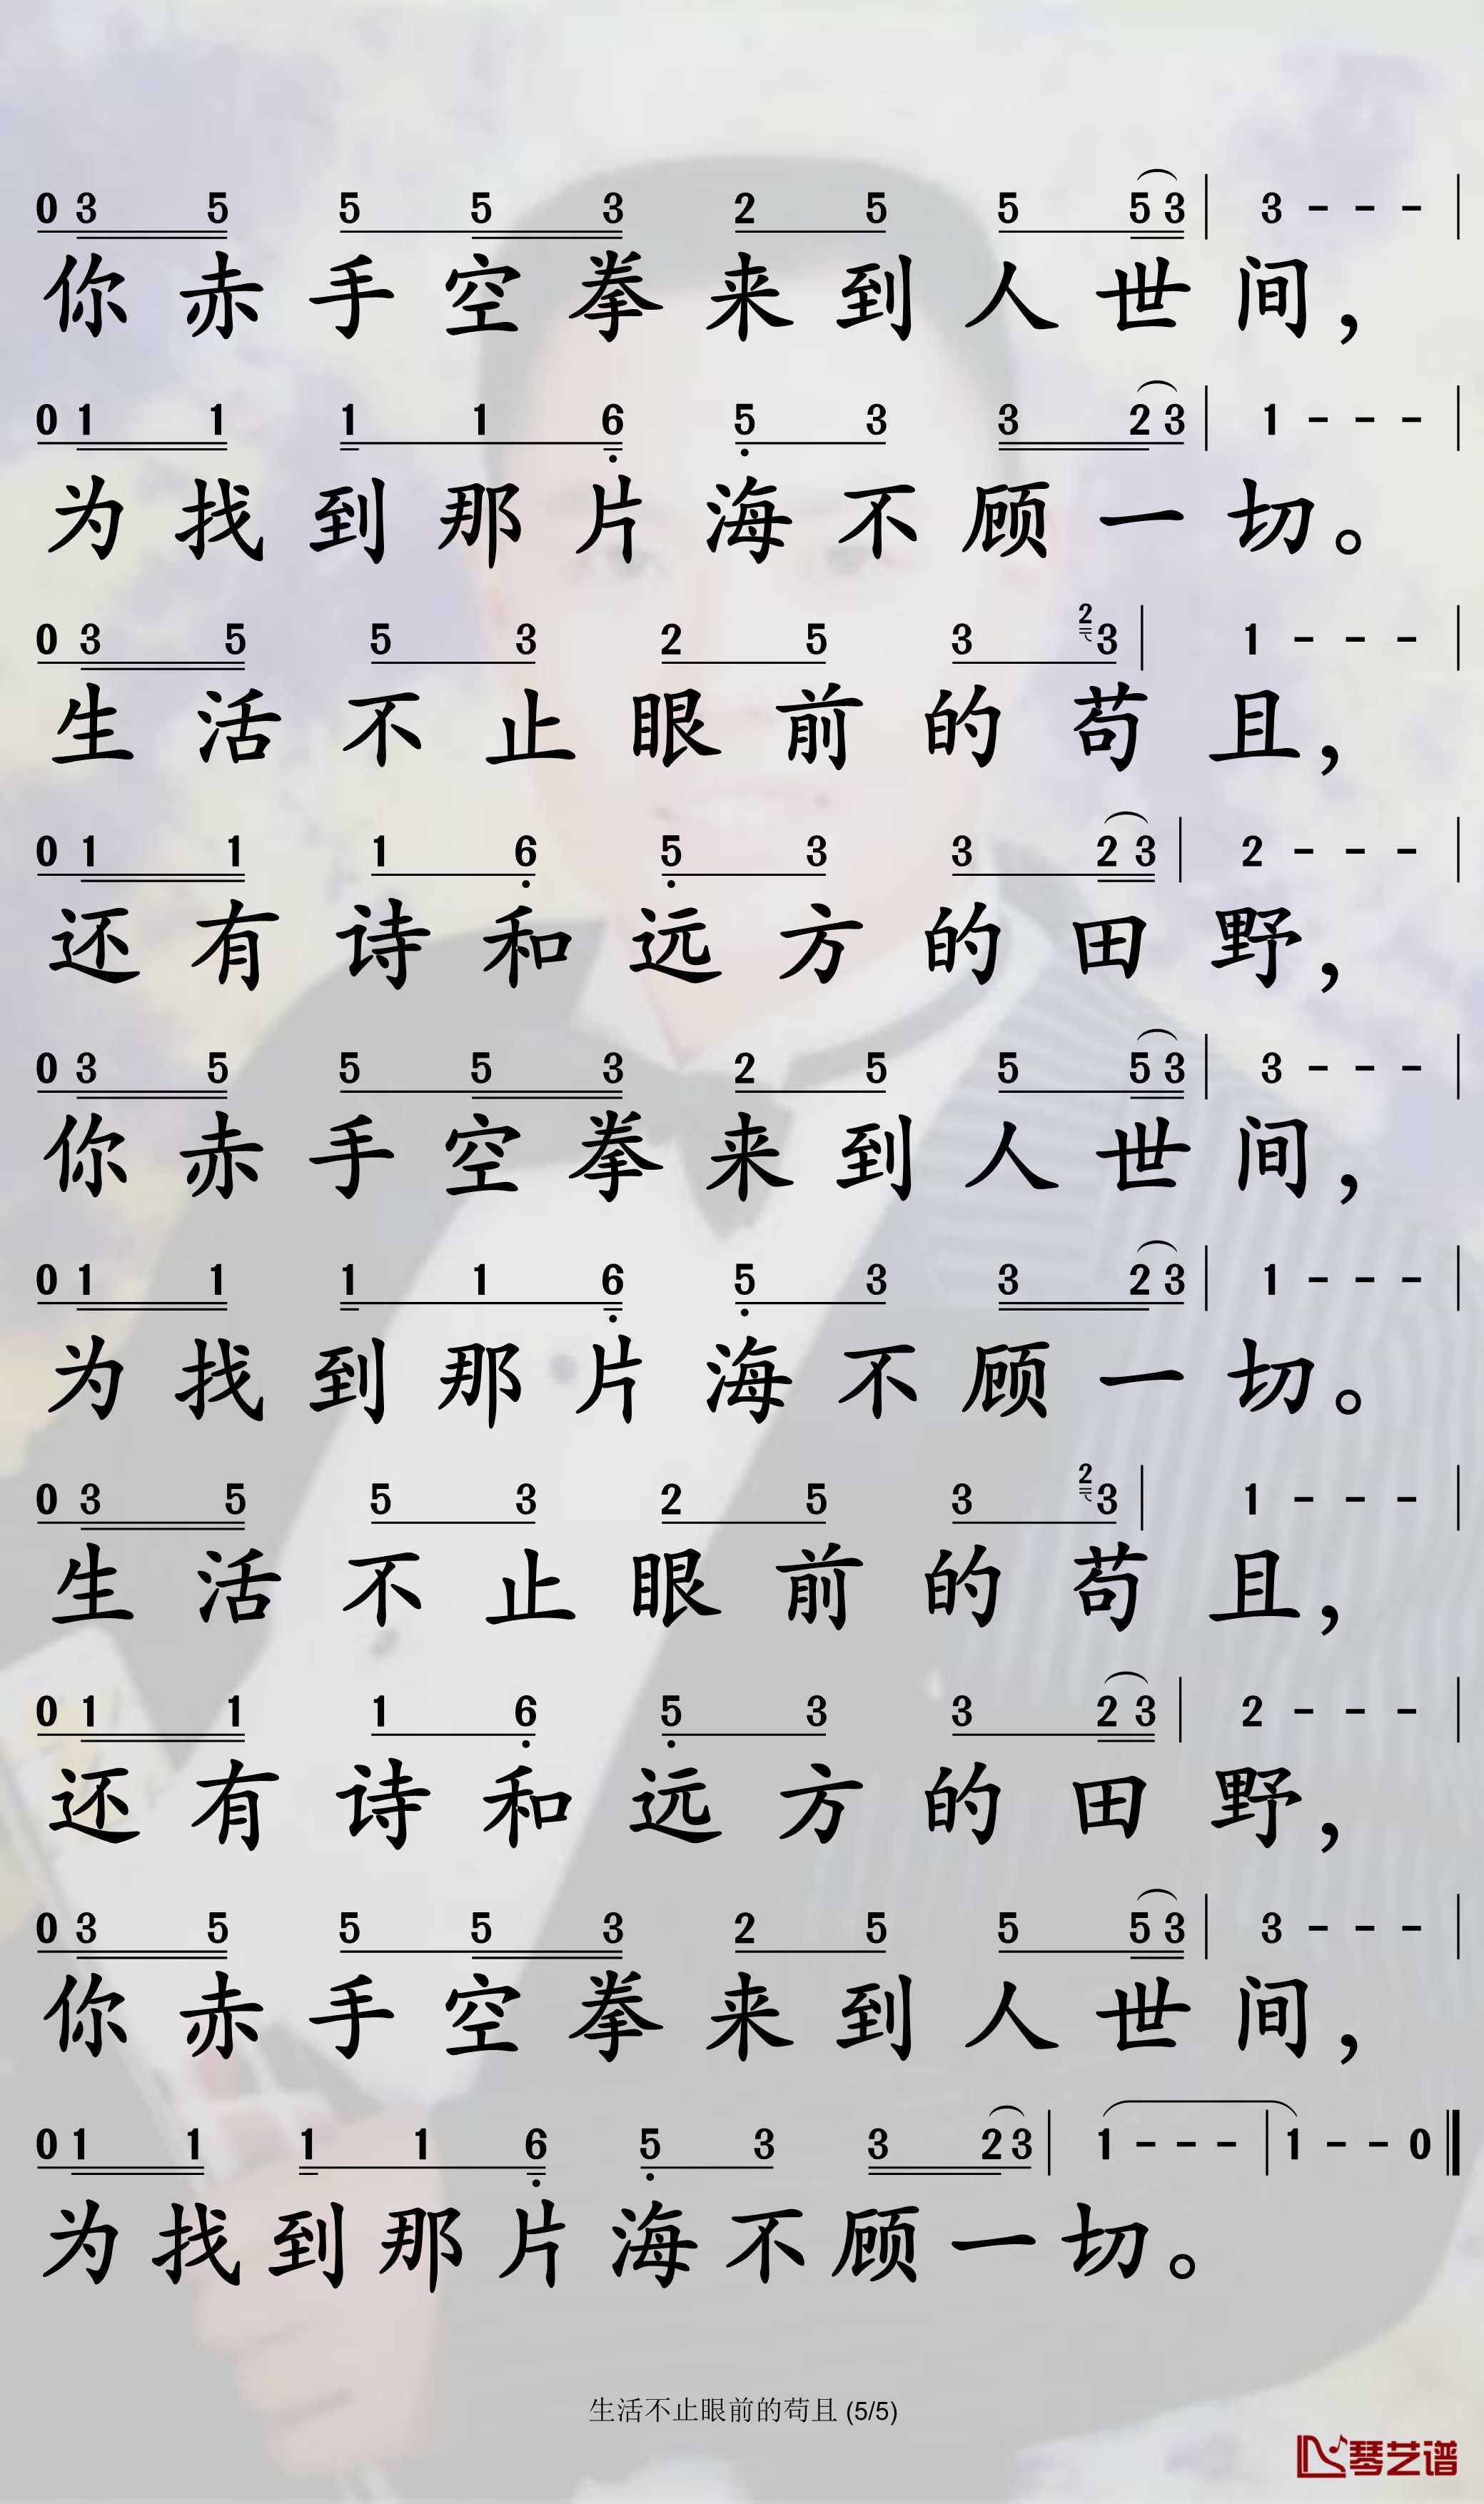 0 3 5 5 5 3 2 5 5 5 3 | 3 - - - |
你赤手空拳来到人世间，
0 1 1 1 1 6̣ 5̣ 3 3 2 3 | 1 - - - |
为找到那片海不顾一切。
0 3 5 5 3 2 5 3 2 3 | 1 - - - |
生活不止眼前的苟且，
0 1 1 1 6̣ 5̣ 3 3 2 3 | 2 - - - |
还有诗和远方的田野，
0 3 5 5 5 3 2 5 5 5 3 | 3 - - - |
你赤手空拳来到人世间，
0 1 1 1 1 6̣ 5̣ 3 3 2 3 | 1 - - - |
为找到那片海不顾一切。
0 3 5 5 3 2 5 3 2 3 | 1 - - - |
生活不止眼前的苟且，
0 1 1 1 6̣ 5̣ 3 3 2 3 | 2 - - - |
还有诗和远方的田野，
0 3 5 5 5 3 2 5 5 5 3 | 3 - - - |
你赤手空拳来到人世间，
0 1 1 1 1 6̣ 5̣ 3 3 2 3 | 1 - - - | 1 - - 0 ‖
为找到那片海不顾一切。
生活不止眼前的苟且 (5/5)
琴艺谱